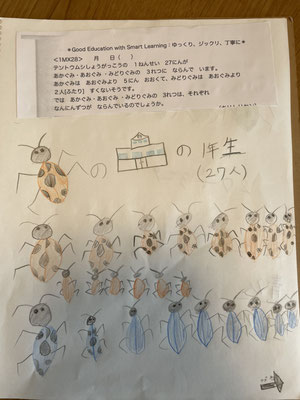 ＊Good Education with Smart Learning：ゆっくり、ジックリ、丁寧に＊
＜1MX28＞　月　日（　）
テントウムシしょうがっこうの　1ねんせい　27にんが
あかぐみ・あおぐみ・みどりぐみの　3れつに　ならんで　います。
あかぐみは　あおぐみより　5にん　おおくて、みどりぐみは　あおぐみより
2人[ふたり]　すくないそうです。
では　あかぐみ・あおぐみ・みどりぐみの　3れつは、それぞれ
なんにんずつが　ならんでいるのでしょうか。
の　の 1年生
(27人)